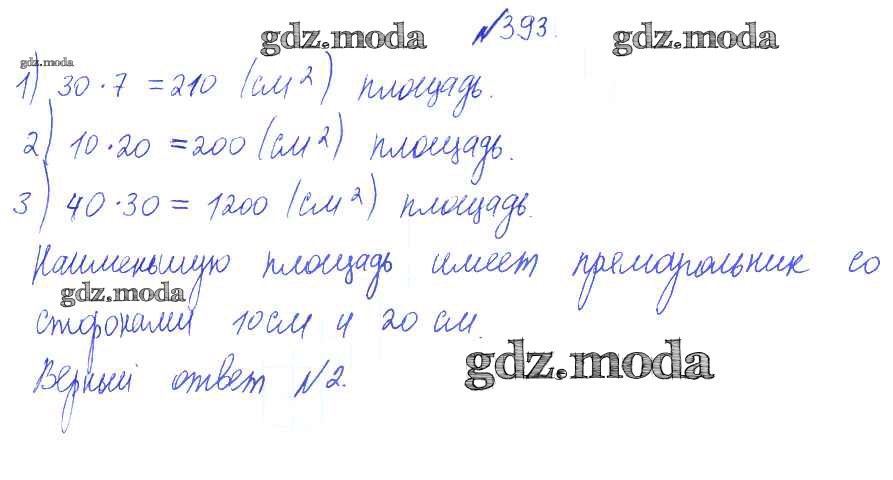 gdz.moda №393. gdz.moda
gdz.moda
1) 30 · 7 = 210 (см²) площадь.
2) 10 · 20 = 200 (см²) площадь.
3) 40 · 30 = 1200 (см²) площадь.
Наименьшую площадь имеет прямоугольник со
gdz.moda
сторонами 10 см и 20 см.
Верный ответ №2.
gdz.moda